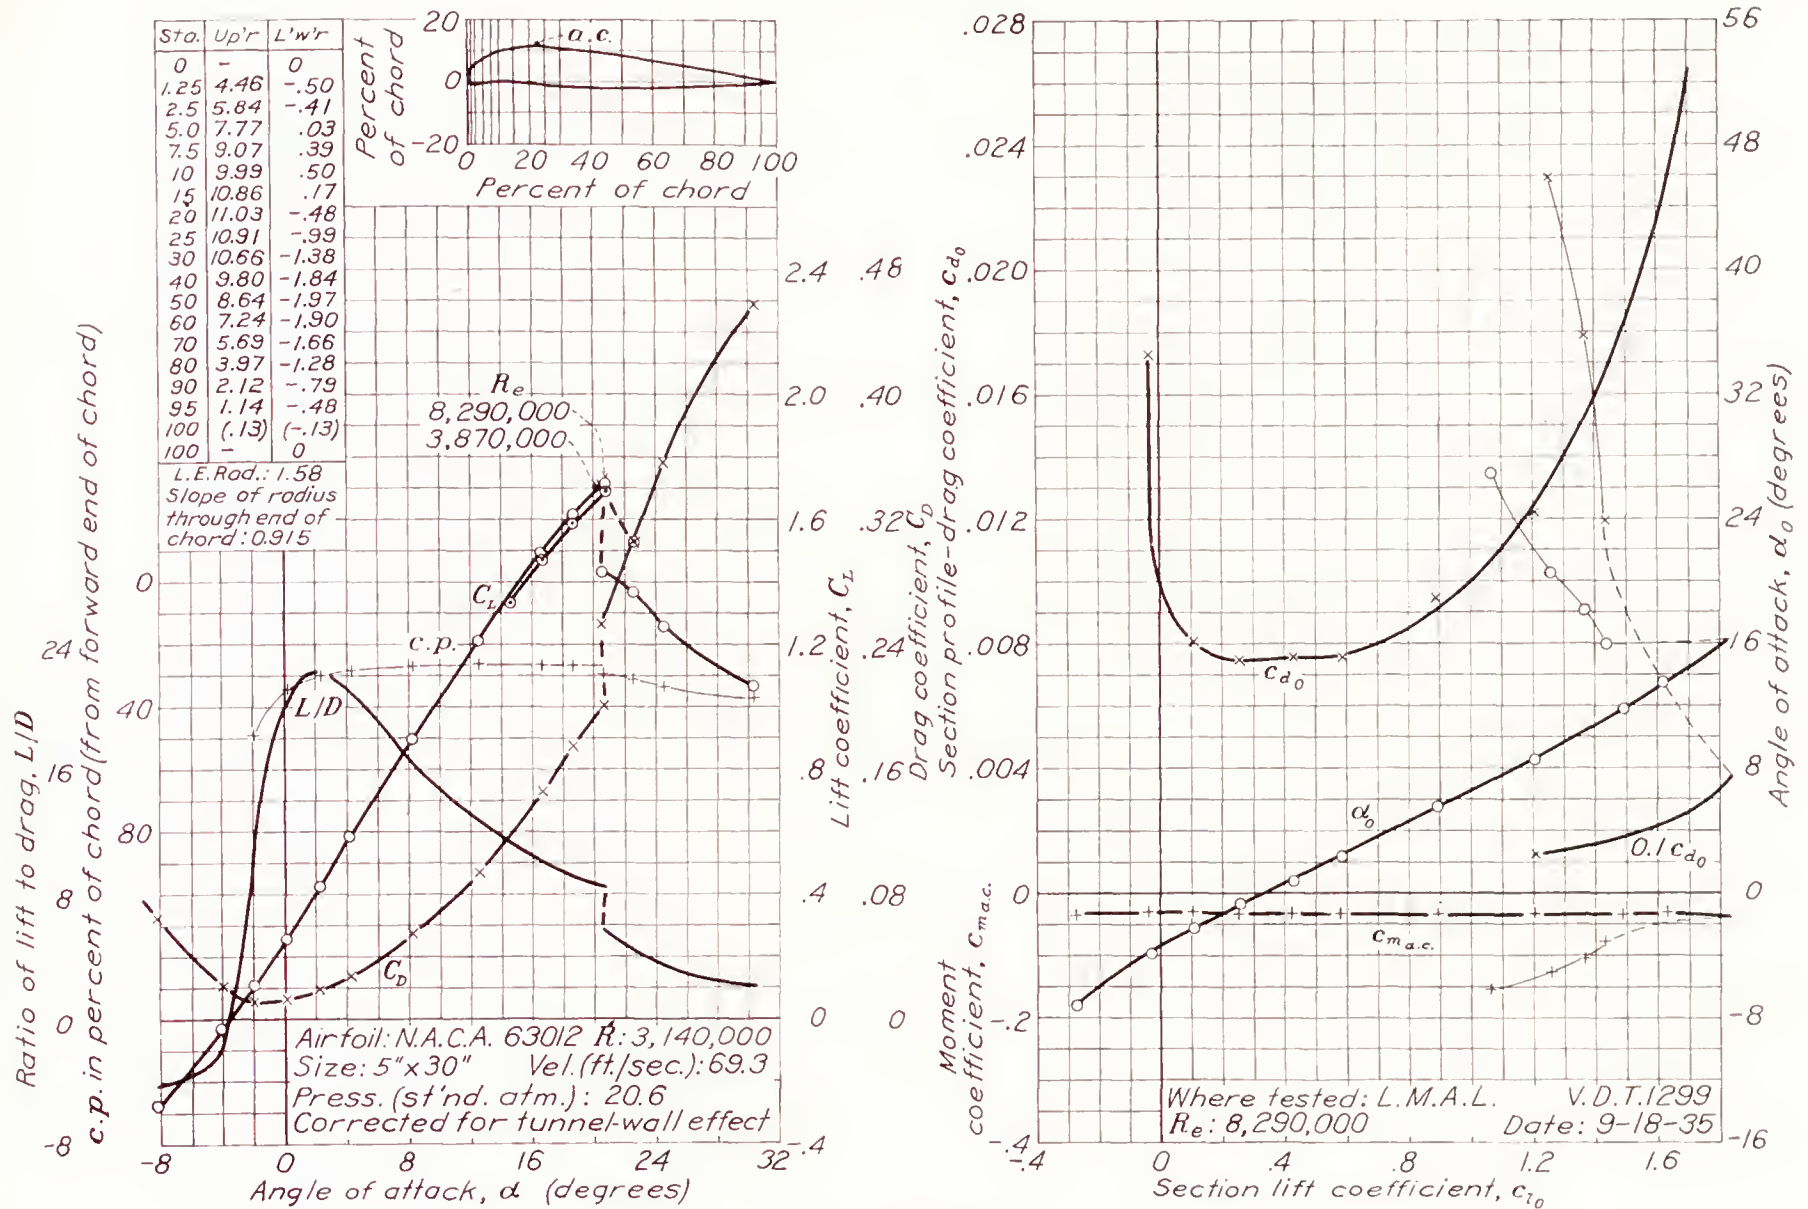 Sta. Up'r L'w'r
0 - 0
1.25 4.46 -.50
2.5 5.84 -.41
5.0 7.77 .03
7.5 9.07 .39
10 9.99 .50
15 10.86 .17
20 11.03 -.48
25 10.91 -.99
30 10.66 -1.38
40 9.80 -1.84
50 8.64 -1.97
60 7.24 -1.90
70 5.69 -1.66
80 3.97 -1.28
90 2.12 -.79
95 1.14 -.48
100 (.13) (-.13)
100 - 0
L.E. Rad.: 1.58
Slope of radius
through end of
chord: 0.915
Percent
of chord
20
0
-20
a.c.
0 20 40 60 80 100
Percent of chord
Re
8,290,000
3,870,000
CL
c.p.
L/D
CD
Ratio of lift to drag, L/D
24
16
8
0
-8
c.p. in percent of chord (from forward end of chord)
0
40
80
2.4
2.0
1.6
1.2
.8
.4
0
-.4
Lift coefficient, CL
.48
.40
.32
.24
.16
.08
0
Drag coefficient, CD
Airfoil: N.A.C.A. 63012 R: 3,140,000
Size: 5"x30" Vel. (ft./sec.): 69.3
Press. (st'nd. atm.): 20.6
Corrected for tunnel-wall effect
-8 0 8 16 24 32
Angle of attack, α (degrees)
Section profile-drag coefficient, cd0
.028
.024
.020
.016
.012
.008
.004
0
-.2
-.4
Moment
coefficient, cma.c.
cd0
α0
0.1 cd0
cma.c.
56
48
40
32
24
16
8
0
-8
-16
Angle of attack, α0 (degrees)
Where tested: L.M.A.L. V.D.T. 1299
Re: 8,290,000 Date: 9-18-35
-.4 0 .4 .8 1.2 1.6
Section lift coefficient, cl0